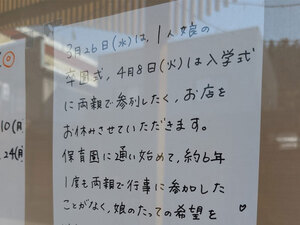 3月26日(水)は、1人娘の
卒園式、4月8日(火)は入学式
に両親で参列したく、お店を
お休みさせていただきます。
保育園に通い始めて、約6年
1度も両親で行事に参加した
ことがなく、娘のたっての希望を
10(月
24(月